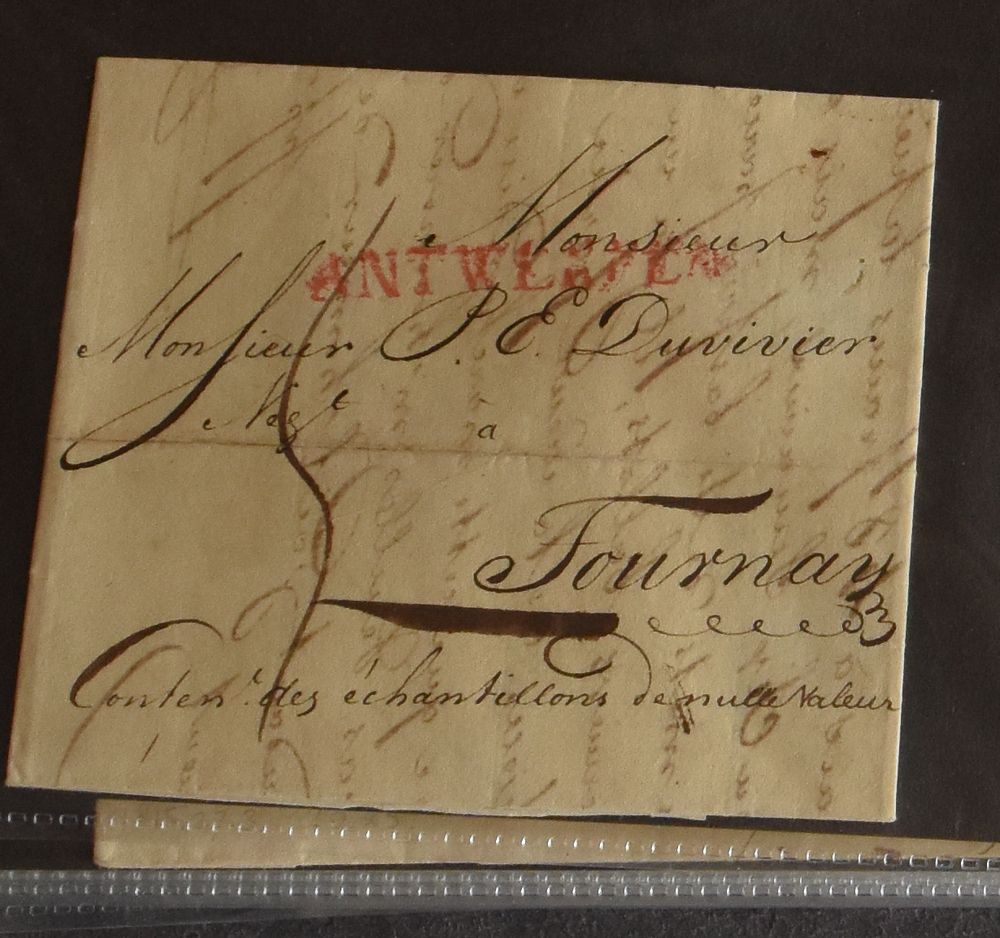 Monsieur
ANTWERPEN
Monsieur P. E. Duvivier
Negt à
Tournay
Conten.t des échantillons de nulle valeur